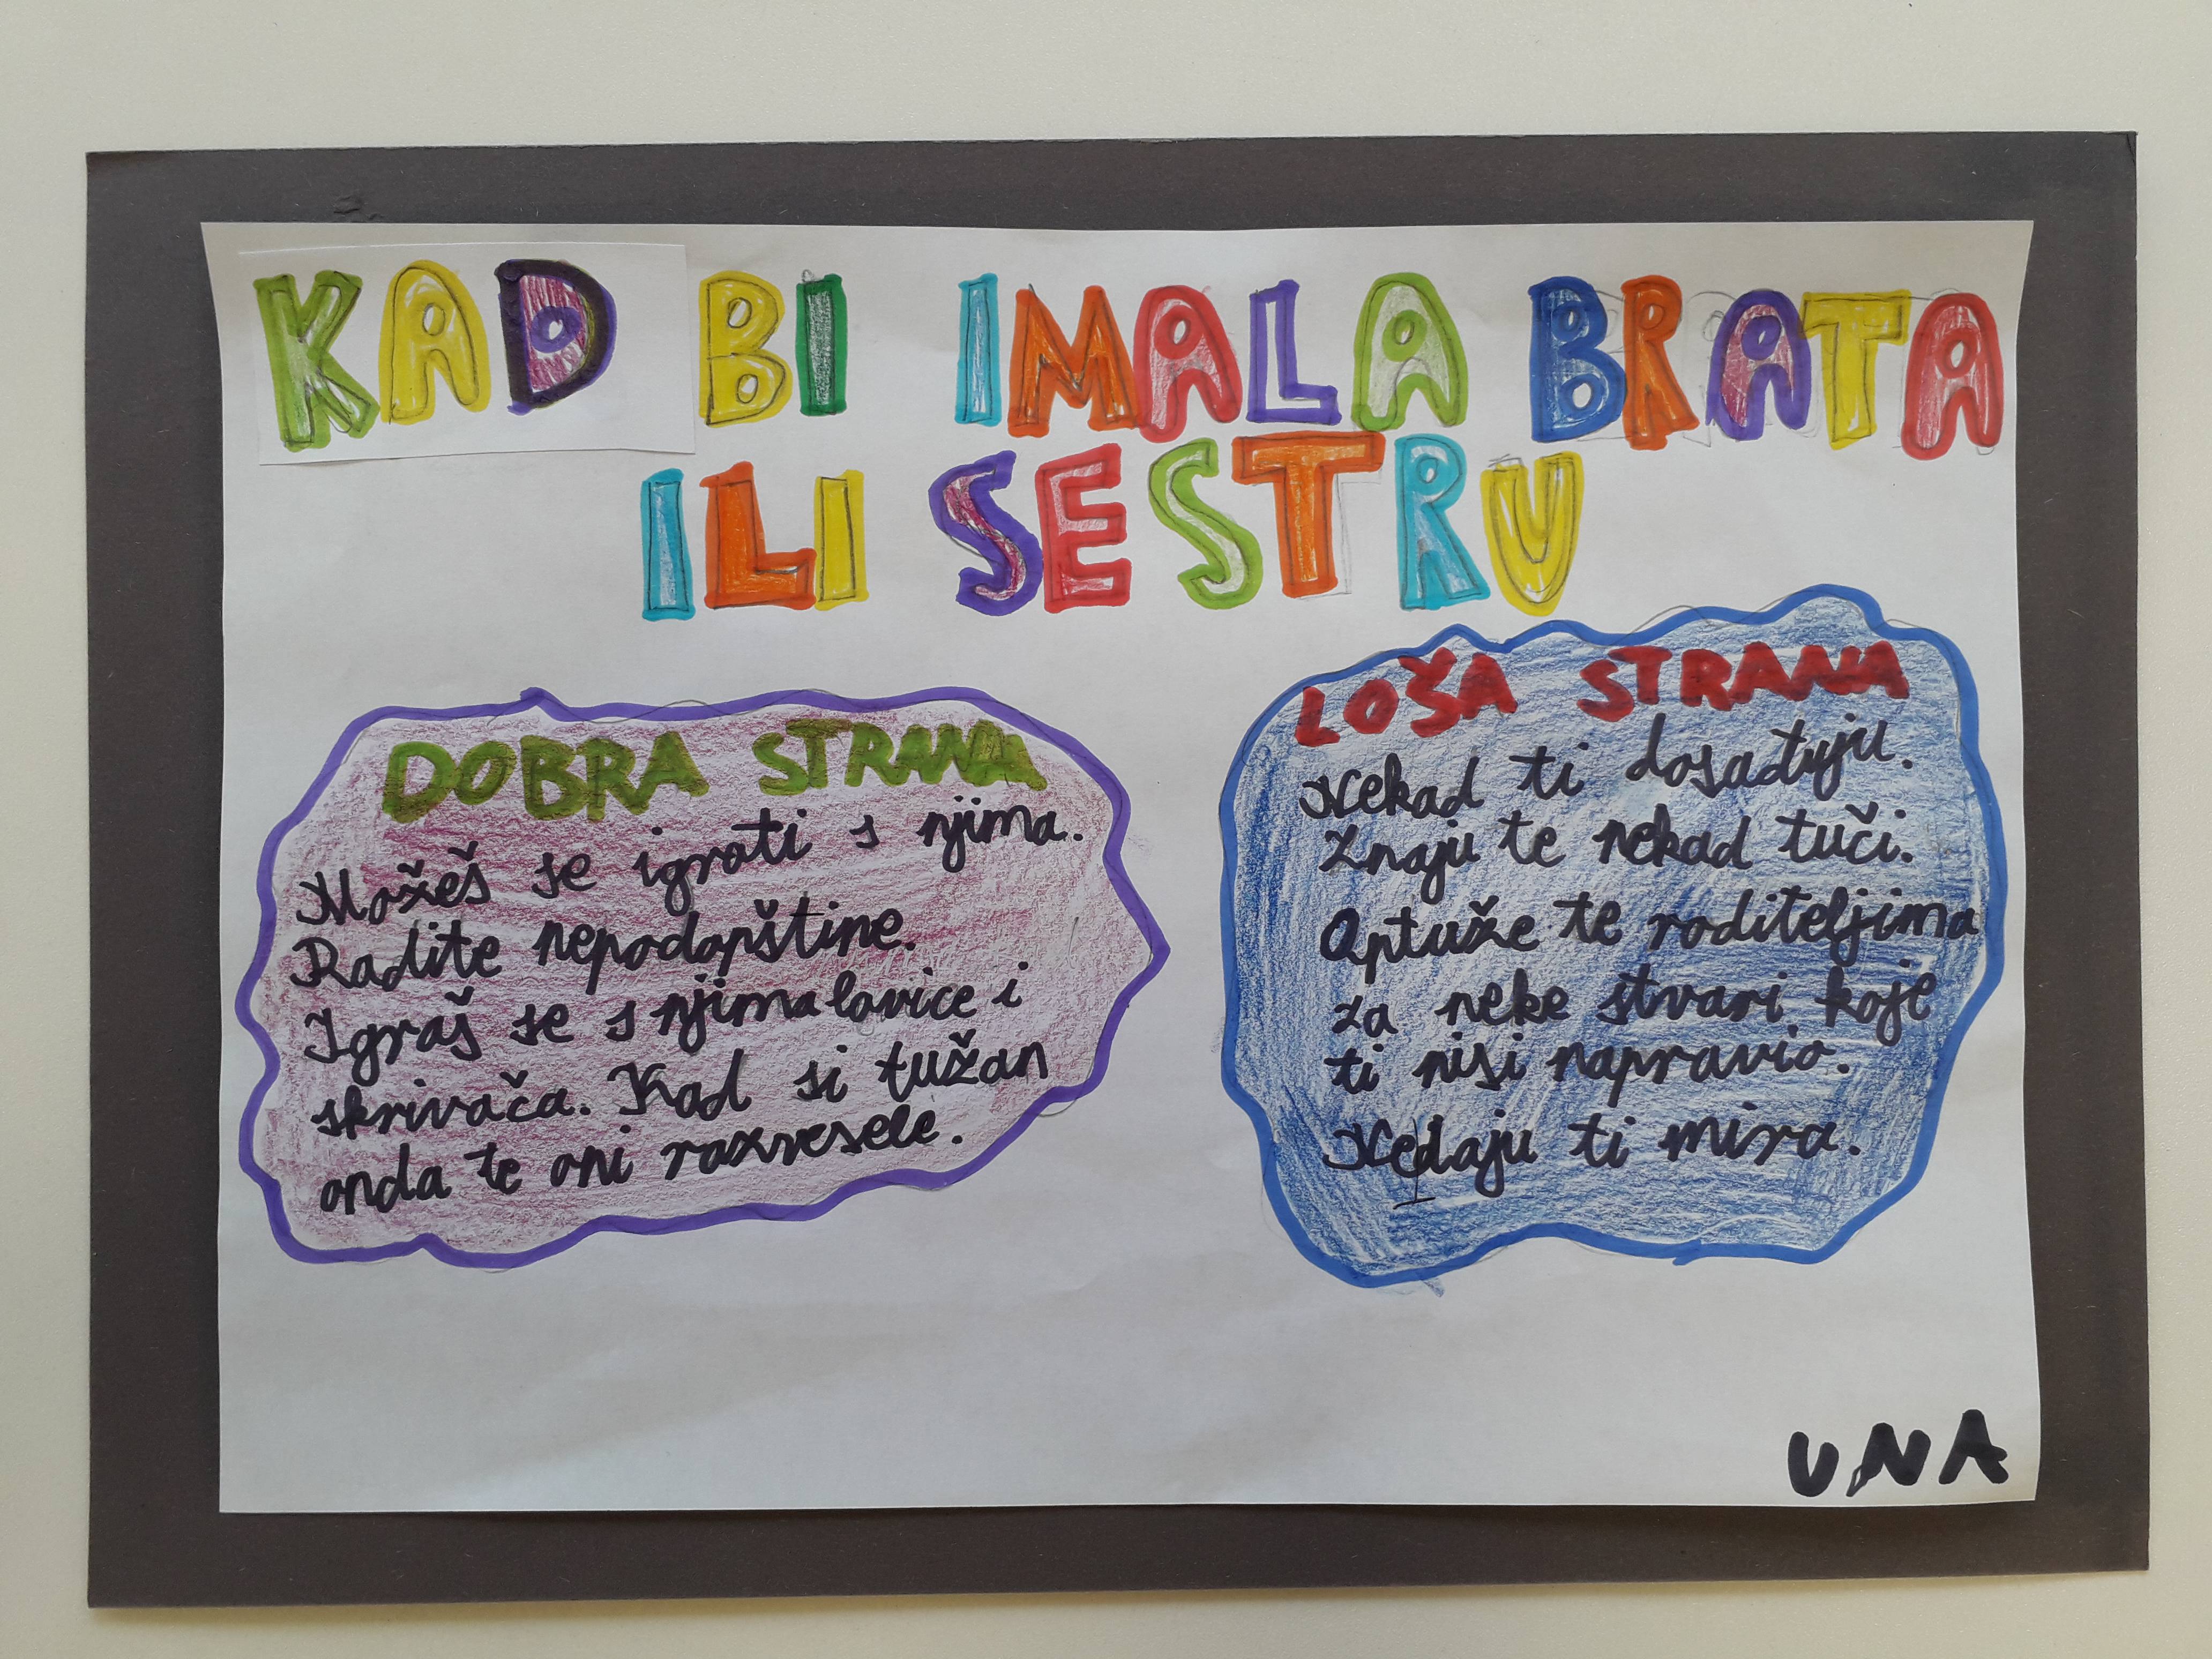 KAD BI IMALA BRATA
ILI SESTRU
DOBRA STRANA
Možeš se igrati s njima.
Radite nepodopštine.
Igraš se s njima lovice i
skrivača. Kad si tužan
onda te oni razvesele.
LOŠA STRANA
Nekad ti dosađuju.
Znaju te nekad tuči.
Optuže te roditeljima
za neke stvari koje
ti nisi napravio.
Nedaju ti mira.
UNA